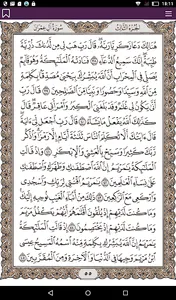 18:11
سُورَةُ آلِ عِمْرَان الجُزْءُ الثَّالِثُ
هُنَالِكَ دَعَا زَكَرِيَّا رَبَّهُۥ قَالَ رَبِّ هَبْ لِى مِن لَّدُنكَ ذُرِّيَّةً
طَيِّبَةً إِنَّكَ سَمِيعُ ٱلدُّعَآءِ ٣٨ فَنَادَتْهُ ٱلْمَلَٰٓئِكَةُ وَهُوَ قَآئِمٌ
يُصَلِّى فِى ٱلْمِحْرَابِ أَنَّ ٱللَّهَ يُبَشِّرُكَ بِيَحْيَىٰ مُصَدِّقًۢا بِكَلِمَةٍ
مِّنَ ٱللَّهِ وَسَيِّدًا وَحَصُورًا وَنَبِيًّا مِّنَ ٱلصَّٰلِحِينَ ٣٩ قَالَ رَبِّ
أَنَّىٰ يَكُونُ لِى غُلَٰمٌ وَقَدْ بَلَغَنِىَ ٱلْكِبَرُ وَٱمْرَأَتِى عَاقِرٌ قَالَ
كَذَٰلِكَ ٱللَّهُ يَفْعَلُ مَا يَشَآءُ ٤٠ قَالَ رَبِّ ٱجْعَل لِّىٓ ءَايَةً
قَالَ ءَايَتُكَ أَلَّا تُكَلِّمَ ٱلنَّاسَ ثَلَٰثَةَ أَيَّامٍ إِلَّا رَمْزًا وَٱذْكُر
رَّبَّكَ كَثِيرًا وَسَبِّحْ بِٱلْعَشِىِّ وَٱلْإِبْكَٰرِ ٤١ وَإِذْ قَالَتِ
ٱلْمَلَٰٓئِكَةُ يَٰمَرْيَمُ إِنَّ ٱللَّهَ ٱصْطَفَىٰكِ وَطَهَّرَكِ وَٱصْطَفَىٰكِ
عَلَىٰ نِسَآءِ ٱلْعَٰلَمِينَ ٤٢ يَٰمَرْيَمُ ٱقْنُتِى لِرَبِّكِ وَٱسْجُدِى
وَٱرْكَعِى مَعَ ٱلرَّٰكِعِينَ ٤٣ ذَٰلِكَ مِنْ أَنۢبَآءِ ٱلْغَيْبِ نُوحِيهِ إِلَيْكَ
وَمَا كُنتَ لَدَيْهِمْ إِذْ يُلْقُونَ أَقْلَٰمَهُمْ أَيُّهُمْ يَكْفُلُ مَرْيَمَ
وَمَا كُنتَ لَدَيْهِمْ إِذْ يَخْتَصِمُونَ ٤٤ إِذْ قَالَتِ ٱلْمَلَٰٓئِكَةُ
يَٰمَرْيَمُ إِنَّ ٱللَّهَ يُبَشِّرُكِ بِكَلِمَةٍ مِّنْهُ ٱسْمُهُ ٱلْمَسِيحُ عِيسَى
ٱبْنُ مَرْيَمَ وَجِيهًا فِى ٱلدُّنْيَا وَٱلْءَاخِرَةِ وَمِنَ ٱلْمُقَرَّبِينَ ٤٥
٥٥